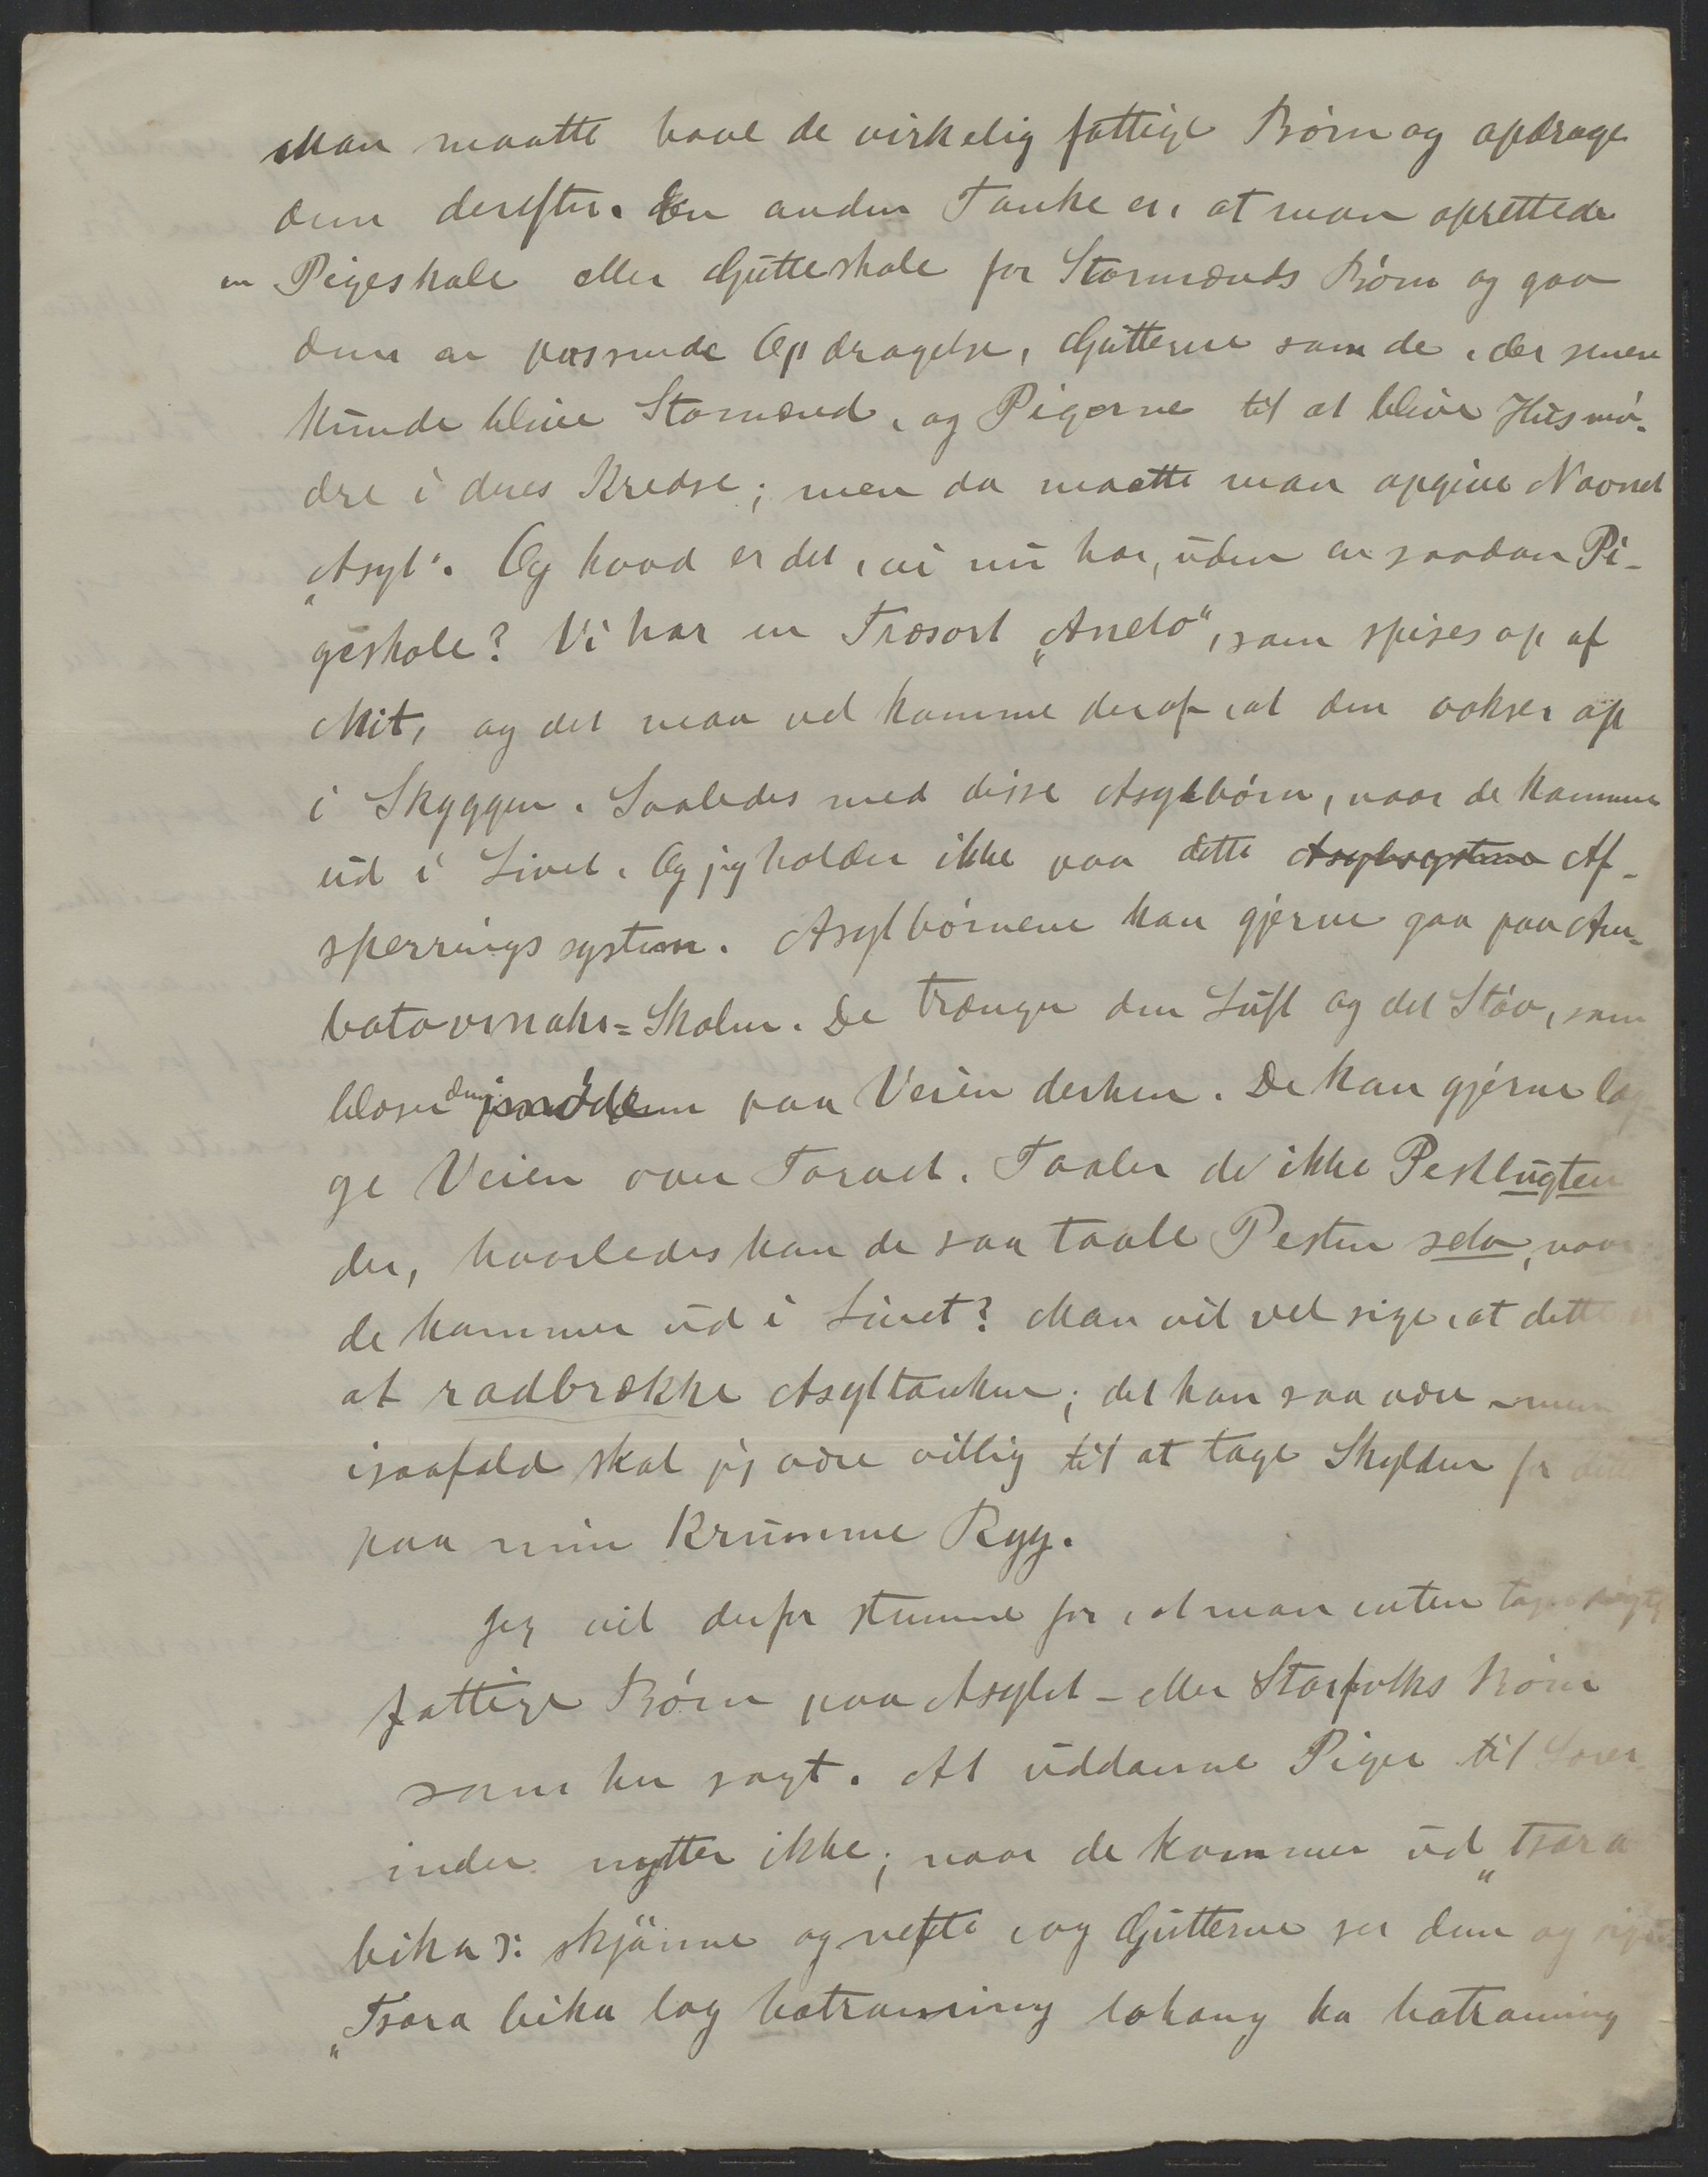 Man maatte have de virkelig fattige Børn og opdrage
dem derefter. En anden Tanke er, at man oprettede
en Pigeskole eller Gutteskole for Stormænds Børn og gav
dem en passende Opdragelse, Gutterne som de, der senere
kunde blive Stormænd, og Pigerne til at blive Husmø-
dre i deres Kredse; men da maatte man opgive Navnet
„Asyl“. Og hvad er det, vi nu har, uden en saadan Pi-
geskole? Vi har en Træsort „Andro“, som spises op af
Mit, og det maa vel komme deraf, at den vokser op
i Skyggen. Saaledes med disse Asylbørn, naar de kommer
ud i Livet. Og jeg holder ikke paa dette Asylsystem Af-
sperringssystem. Asylbørnene kan gjerne gaa paa Am-
batovinaki=Skolen. De trænger den Luft og det Støv, som
blæser dem imøde paa Veien derhen. De kan gjerne læg-
ge Veien over Torvet. Taaler de ikke Pestlugten
der, hvorledes kan de saa taale Pesten selv, naar
de kommer ud i Livet? Man vil vel sige, at dette er
at radbrække Asyltanken; det kan saa være – men
isaafald skal jeg være villig til at tage Skylden for dette
paa min krumme Ryg.
Jeg vil derfor stemme for, at man enten tager
fattige Børn paa Asylet – eller Storfolks Børn
som her sagt. At uddanne Piger til Lærer-
inder nytter ikke; naar de kommer ud „tsara
bika ɔ: skjønne og nette, og Gutterne ser dem og siger
„Tsara bika lay zatra